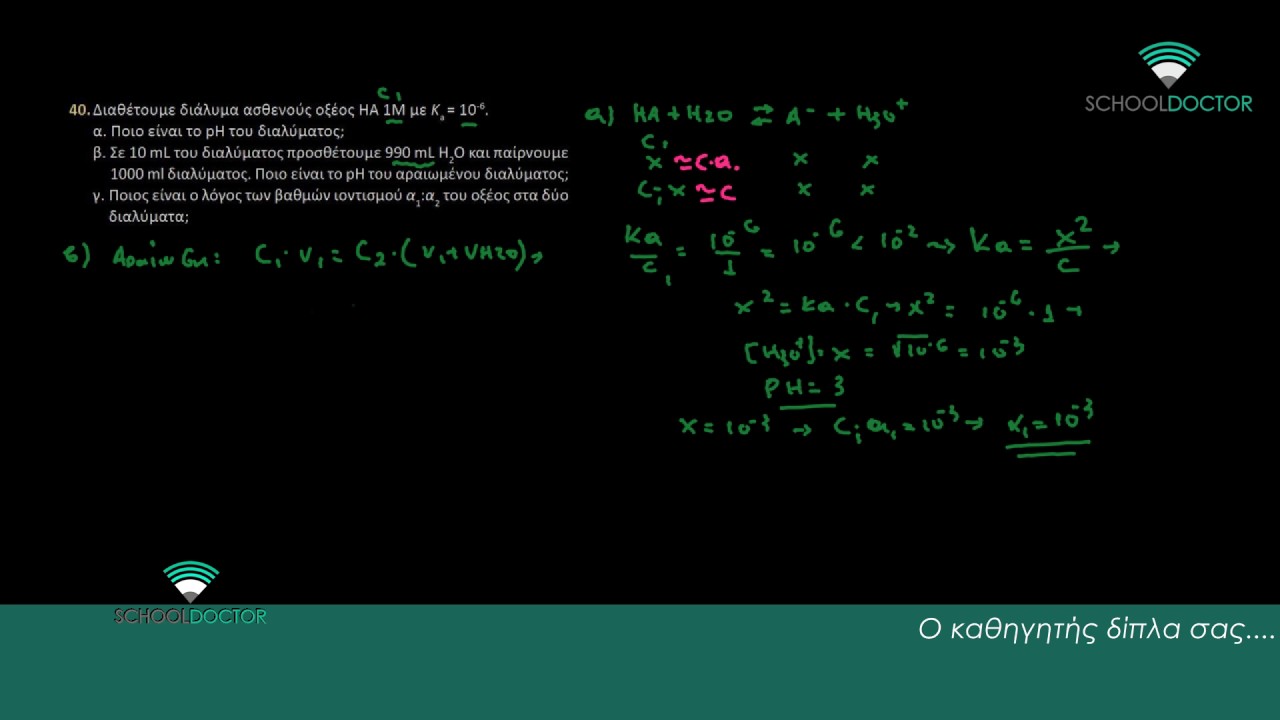 SCHOOLDOCTOR
C₁
40. Διαθέτουμε διάλυμα ασθενούς οξέος ΗΑ 1Μ με Kₐ = 10⁻⁶.
α. Ποιο είναι το pH του διαλύματος;
β. Σε 10 mL του διαλύματος προσθέτουμε 990 mL H₂O και παίρνουμε
1000 ml διαλύματος. Ποιο είναι το pH του αραιωμένου διαλύματος;
γ. Ποιος είναι ο λόγος των βαθμών ιοντισμού α₁:α₂ του οξέος στα δύο
διαλύματα;
β) Αραίωση: C₁·V₁ = C₂·(V₁+VH2O) →
a) HA + H2O ⇌ A⁻ + H₃O⁺
C₁
x ≈C·a. x x
C₁-x ≈C x x
Ka/C₁ = 10⁻⁶/1 = 10⁻⁶ < 10⁻² → Ka = x²/C →
x² = Ka·C₁ → x² = 10⁻⁶·1 →
[H₃O⁺]=x = √10⁻⁶ = 10⁻³
PH = 3
x = 10⁻³ → C₁a₁ = 10⁻³ → α₁ = 10⁻³
SCHOOLDOCTOR
Ο καθηγητής δίπλα σας....